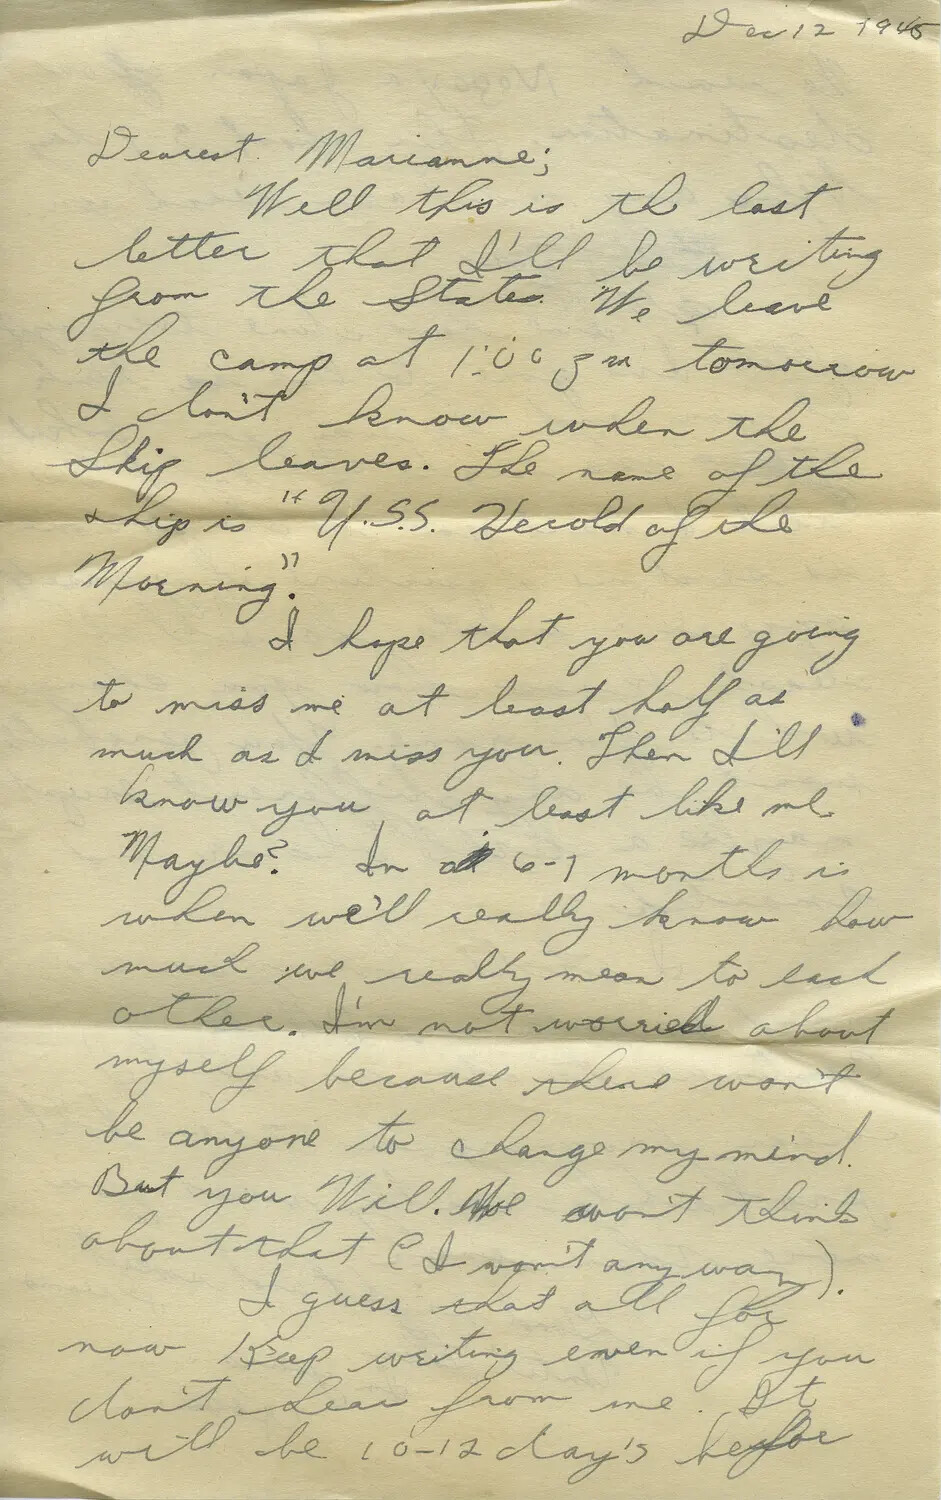 Dec 12 1945
Dearest Marianne;
Well this is th last
letter that I'll be writing
from the States. We leave
the camp at 1:00 pm tomorrow
I don't know when the
Ship leaves. The name of the
ship is "U.S.S. Herold of the
Morning".
I hope that you are going
to miss me at least half as
much as I miss you. Then I'll
know you at least like me
Maybe? In 6-7 months is
when we'll really know how
much we really mean to each
other. I'm not worried about
myself because there won't
be anyone to change my mind.
But you Will. We won't think
about that (I won't any way).
I guess that all for
now Keep writing even if you
don't hear from me. It
will be 10-12 day's before